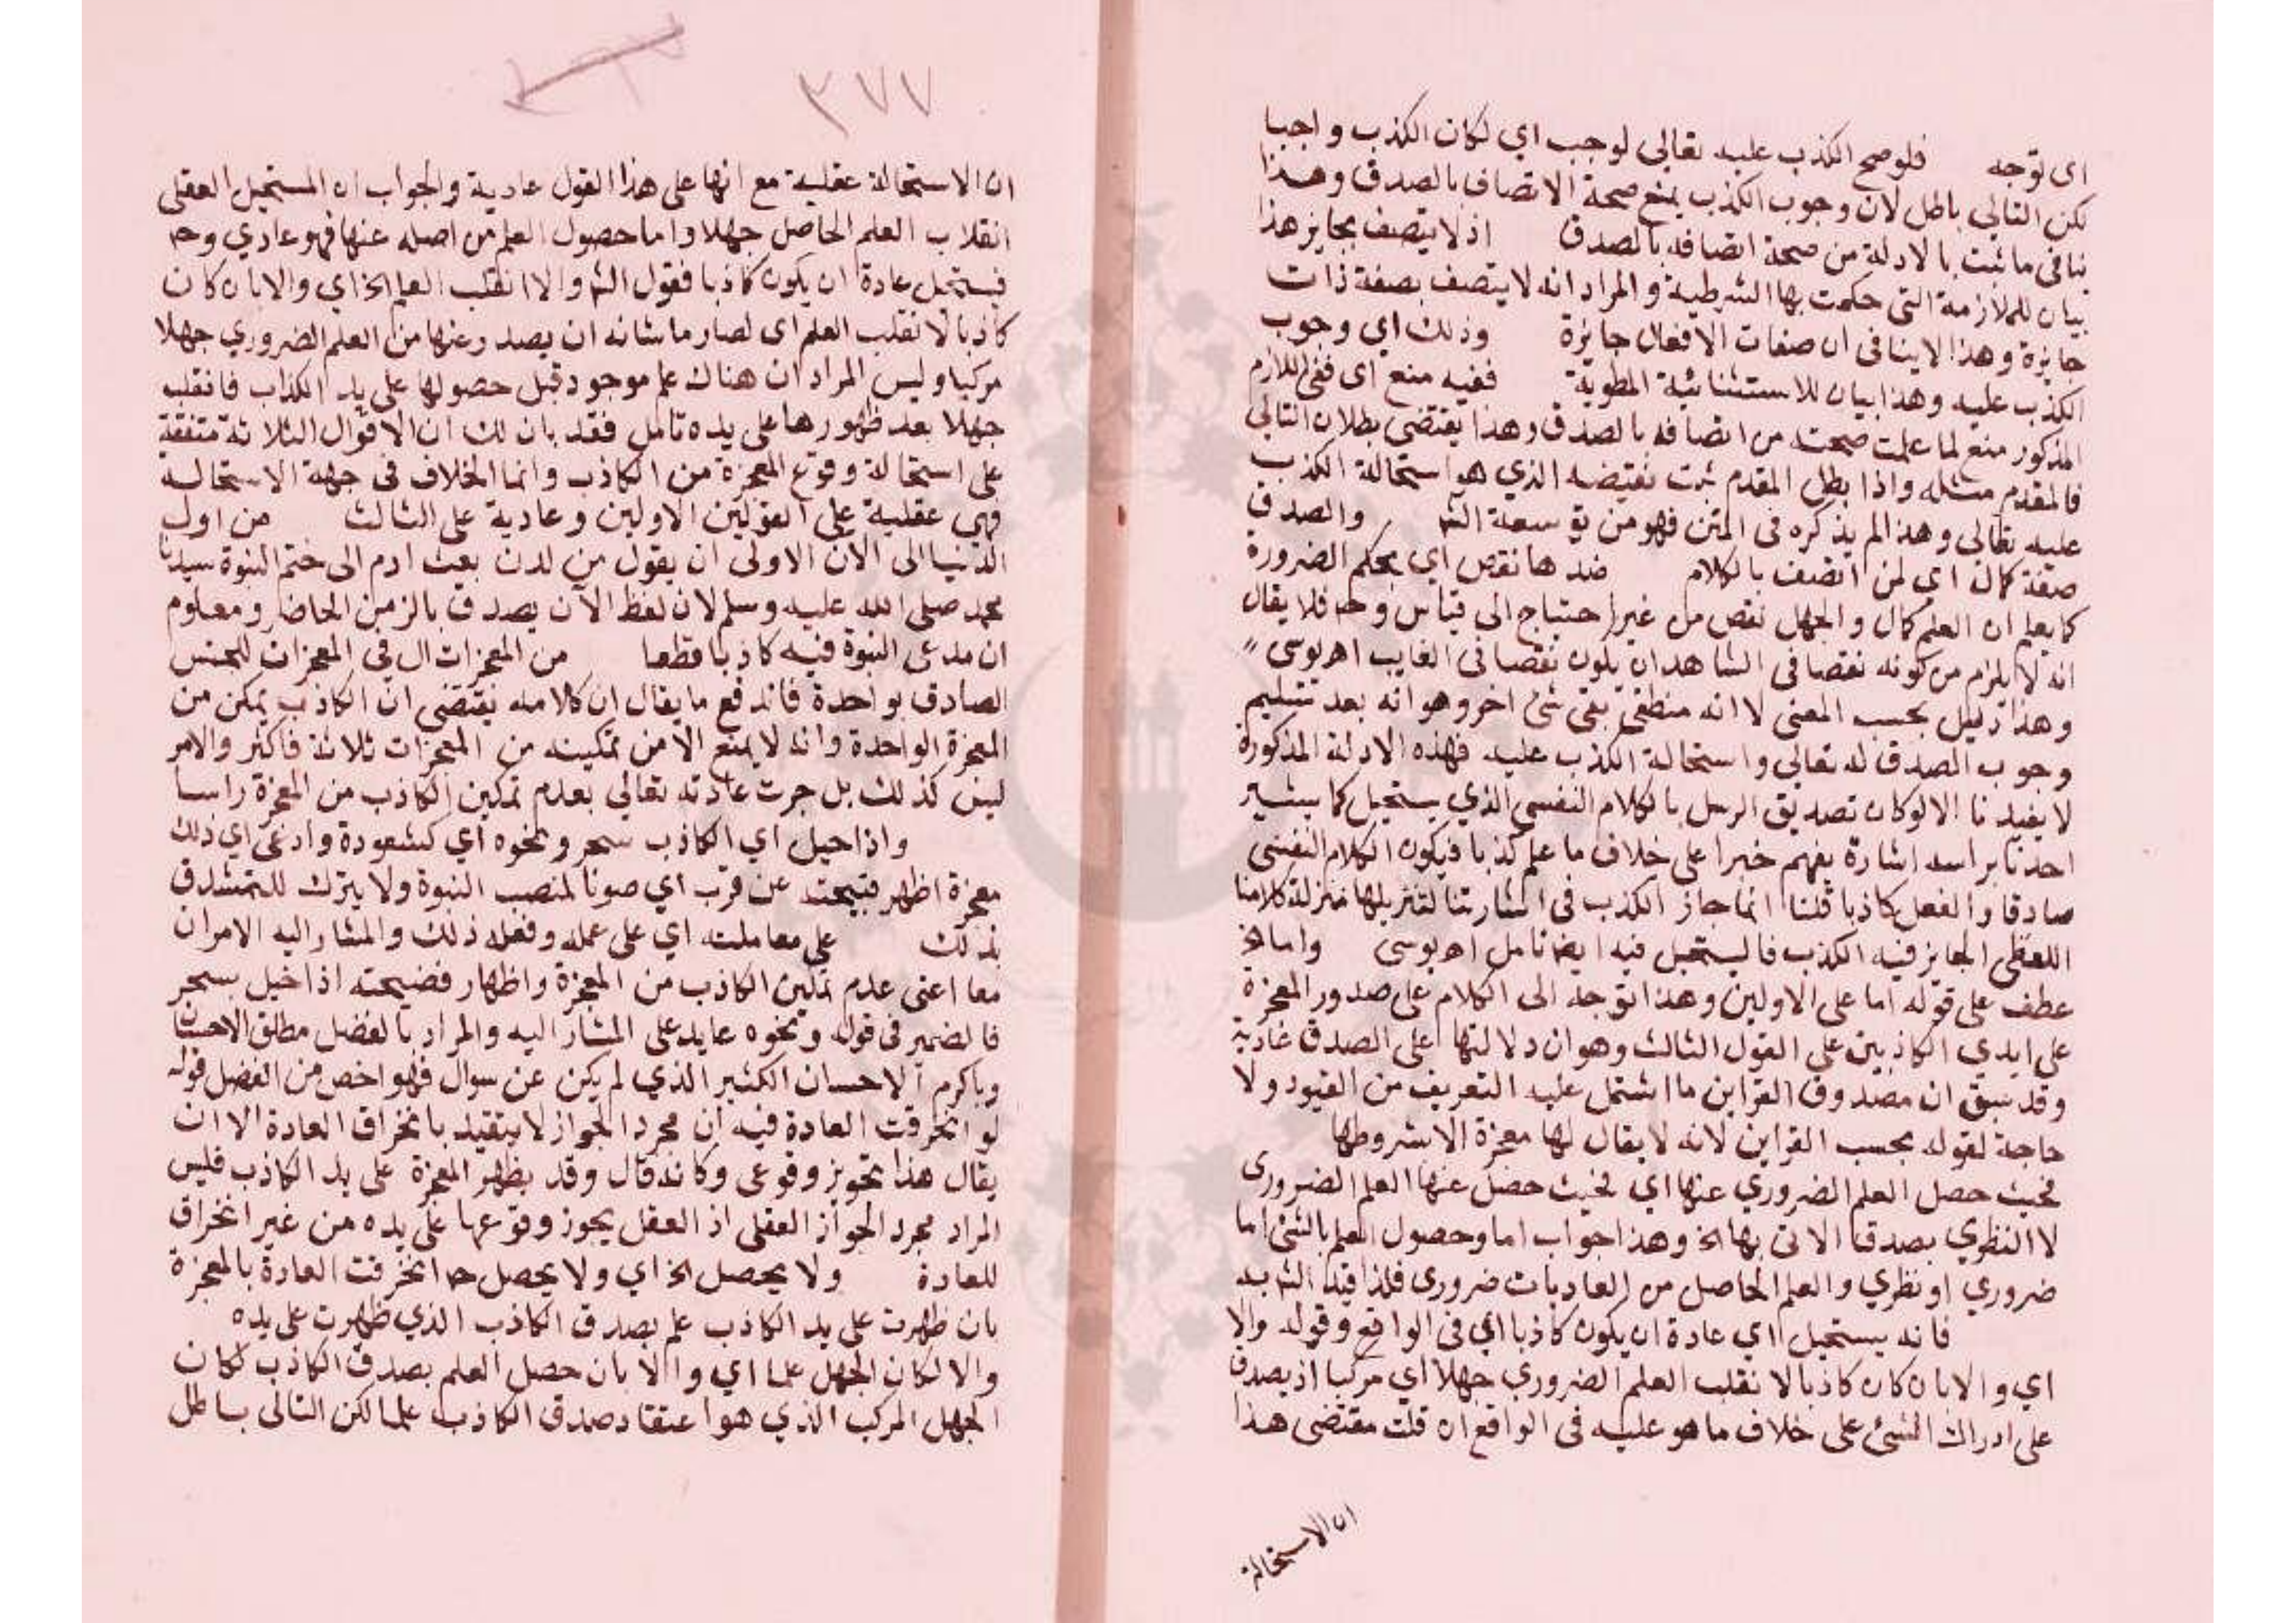 اى توجه فلو صح الكذب عليه تعالى لوجب اي لكان الكذب واجبا
لكن التالي باطل لان وجوب الكذب يمنع صحة الاتصاف بالصدق وهذا
ينافى ما ثبت بالادلة من صحة اتصافه بالصدق اذ لا يتصف بجايز هذا
بيان للملازمة التى حكمت بها الشرطية والمراد انه لا يتصف بصفة ذات
جايزة وهذا لا ينافى ان صفات الافعال جايزة وذلك اي وجوب
الكذب عليه وهذا بيان للاستثنائية المطوية ففيه منع اى ففي اللازم
المذكور منع لما علمت صحته من اتصافه بالصدق وهذا يقتضى بطلان التالي
فالمقدم مثله واذا بطل المقدم ثبت نقيضه الذي هو استحالة الكذب
عليه تعالى وهذا لم يذكره فى المتن فهو من توسعة الش والصدق
صفة كمال اي لمن اتصف بالكلام ضدها نقص اي بحكم الضرورة
كما يعلم ان العلم كمال والجهل نقص من غير احتياج الى قياس وح فلا يقال
انه لا يلزم من كونه نقصا فى الشاهد ان يكون نقصا فى الغايب اهـ يوسى
وهذا دليل بحسب المعنى لا انه منطقي بقى شئ اخر وهو انه بعد تسليم
وجوب الصدق له تعالى واستحالة الكذب عليه فهذه الادلة المذكورة
لا يفيدنا الا لو كان تصديق الرسل بالكلام النفسي الذي يستحيل كما يشير
احدنا براسه اشارة يفهم خبرا على خلاف ما علم كذبا فيكون الكلام النفسى
صادقا والفعل كاذبا قلنا انما جاز الكذب فى اشارتنا لتنزيلها منزلة كلامنا
اللفظى الجايز فيه الكذب فالمستحيل فيه ايضا تامل اهـ يوسى واما الخ
عطف على قوله اما على الاولين وهذا توجه الى الكلام على صدور المعجزة
على ايدي الكاذبين على القول الثالث وهو ان دلالتها على الصدق عادية
وقد سبق ان مصدوق القراين ما اشتمل عليه التعريف من القيود ولا
حاجة لقوله بحسب القراين لانه لا يقال لها معجزة الا بشروطها
فحيث حصل العلم الضروري عنها اي فحيث حصل عنها العلم الضرورى
لا النظري بصدق الاتى بها الخ وهذا جواب اما وحصول العلم بالشئ اما
ضروري او نظري والعلم الحاصل من العاديات ضرورى فلذا قيد الش به
فانه يستحيل اي عادة ان يكون كاذبا اي فى الواقع وقوله والا
اي والا بان كان كاذبا لا نقلب العلم الضروري جهلا اي مركبا اذ يصدق
على ادراك الشئ على خلاف ما هو عليه فى الواقع ان قلت مقتضى هذا
ان الاستحالة
٣٧٧
ان الاستحالة عقلية مع انها على هذا القول عادية والجواب ان المستحيل العقلى
انقلاب العلم الحاصل جهلا واما حصول العلم من اصله عنها فهو عادي وح
فيستحيل عادة ان يكون كاذبا فقول الش والا انقلب العلم الخ اي والا بان كان
كاذبا لا نقلب العلم اى لصار ما شانه ان يصدر عنها من العلم الضروري جهلا
مركبا وليس المراد ان هناك علم موجود قبل حصولها على يد الكذاب فانقلب
جهلا بعد ظهورها على يده تامل فقد بان لك ان الاقوال الثلاثة متفقة
على استحالة وقوع المعجزة من الكاذب وانما الخلاف فى جهة الاستحالة
فهي عقلية على القولين الاولين وعادية على الثالث من اول
الدنيا الى الان الاولى ان يقول من لدن بعث ادم الى ختم النبوة سيدنا
محمد صلى الله عليه وسلم لان لفظ الآن يصدق بالزمن الحاضر ومعلوم
ان مدعى النبوة فيه كاذبا قطعا من المعجزات ال في المعجزات للجنس
الصادق بواحدة فاندفع ما يقال ان كلامه يقتضى ان الكاذب يمكن من
المعجزة الواحدة وانه لا يمنع الا من تمكينه من المعجزات ثلاثة فاكثر والامر
ليس كذلك بل جرت عادته تعالى بعدم تمكين الكاذب من المعجزة راسا
واذا خيل اي الكاذب بسحر ونحوه اي كشعوذة وادعى اي ذلك
معجزة اظهر فضيحته عن قرب اي صونا لمنصب النبوة ولا يترك للتمشدق
بذلك على معاملته اي على عمله وفعله ذلك والمشار اليه الامران
معا اعنى عدم تمكين الكاذب من المعجزة واظهار فضيحته اذا خيل بسحر
فالضمير فى قوله ونحوه عايد على المشار اليه والمراد بالفضل مطلق الاحسان
وبالكرم الاحسان الكثير الذي لم يكن عن سوال فهو اخص من الفضل قوله
لو انخرقت العادة فيه ان مجرد الجواز لا يتقيد بانخراق العادة الا ان
يقال هذا تجويز وقوعى وكانه قال وقد يظهر المعجزة على يد الكاذب فليس
المراد مجرد الجواز العقلى اذ العقل يجوز وقوعها على يده من غير انخراق
للعادة ولا يحصل الخ اي ولا يحصل ح انخرقت العادة بالمعجزة
بان ظهرت على يد الكاذب علم بصدق الكاذب الذي ظهرت على يده
والا لكان الجهل علما اي والا بان حصل العلم بصدق الكاذب لكان
الجهل المركب الذي هو اعتقاد صدق الكاذب علما لكن التالى باطل